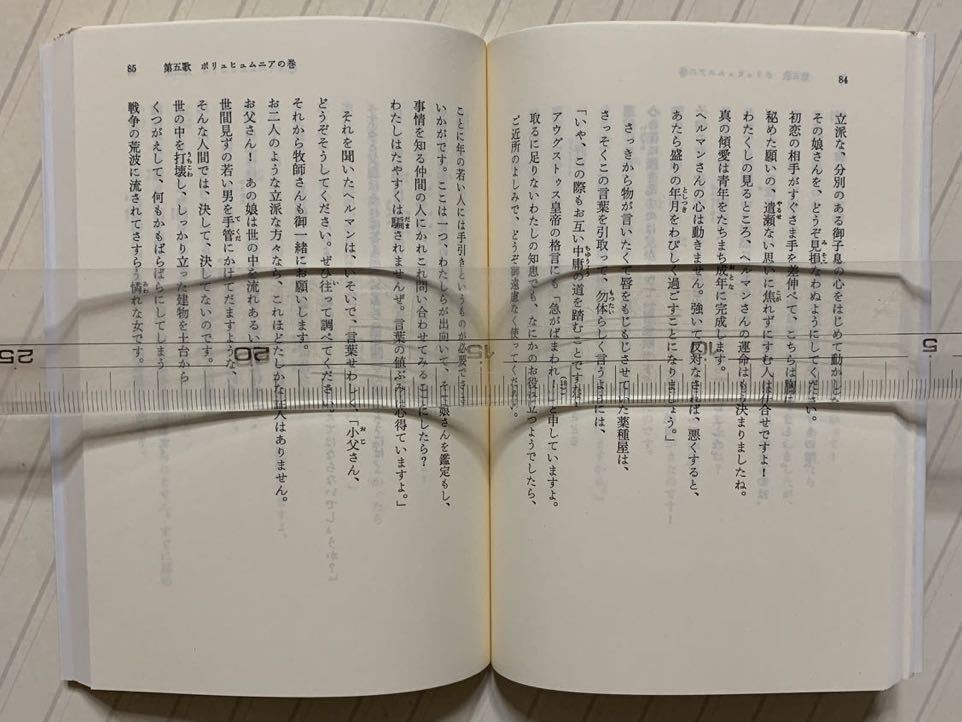 84
立派な、分別のある御子息の心をはじめて動かした
その娘さんを、どうぞ見損なわぬようにしてください。
初恋の相手がすぐさま手を差伸べて、こちらは胸に
秘めた願いの、遣瀬ない思いに焦れずにすむ人は仕合せですよ!
わたくしの見るところ、ヘルマンさんの運命はもう決まりましたね。
真の傾愛は青年をたちまち成年に完成します。
ヘルマンさんの心は動きません。強いて反対なされば、悪くすると、
あたら盛りの年月をわびしく過ごすことになりましょう。」
さっきから物が言いたくて唇をもじもじさせていた薬種屋は、
さっそくこの言葉を引取って、勿体らしく言うようには、
「いや、この際もお互い中庸の道を踏むことですな!
アウグストゥス皇帝の格言にも「急がばまわれ!」と申していますよ。
ご近所のよしみで、どうぞ御遠慮なく使ってください。
取るに足りないわたしの知恵でも、なにかのお役に立つようでしたら、
85 第五歌 ポリュヒュムニアの巻
ことに年の若い人には手引きというものが必要でさ
いかがです。ここは一つ、わたしらが出向いて、その娘さんを鑑定もし、
事情を知る仲間の人にかれこれ問い合わせてみることにしたら?
わたしはたやすくは騙されませんぜ。言葉の値ぶみも心得ていますよ。」
それを聞いたヘルマンは、いそいで、言葉せわしく、「小父さん、
どうぞそうしてください。ぜひ往って調べてください。
それから牧師さんも御一緒にお願いします。
お二人のような立派な方々なら、これほどたしかな証人はありません。
お父さん! あの娘は世の中を流れあるい
世間見ずの若い男を手管にかけてだますような、
そんな人間では、決して、決してないのです。
世の中を打壊し、しっかり立った建物を土台から
くつがえして、何もかもばらばらにしてしまう
戦争の荒波に流されてさすらう憐れな女です。
25
20
15
10
5